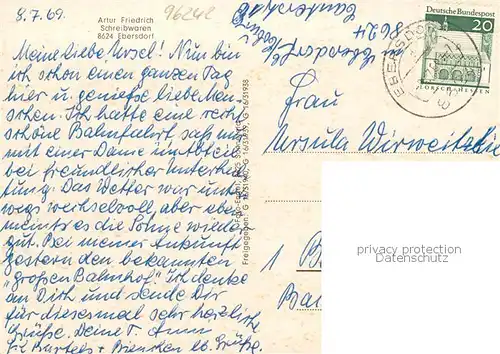 8.7.69.
96242
Artur Friedrich
Schreibwaren
8624 Ebersdorf
Meine liebe Ursel! Nun bin
ich schon einen ganzen Tag
hier u. genieße liebe Men-
schen. Ich hatte eine recht
schöne Bahnfahrt saß nur
mit einer Dame im Abteil
bei freundlicher Unterhal-
tung. Das Wetter war unter-
wegs wechselvoll, aber eben
meint es die Sonne wieder
gut. Bei meiner Ankunft
gestern den bekannten
"großen Bahnhof". Ich denke
an Dich und sende Dir
für diesesmal sehr herzliche
Grüße. Deine T. Anni
Bartels + Bienchen lb. Grüße.
Freigegeben: G 16/31940, G 16/31939, G 16/31938
8624
Ebersdorf
Deutsche Bundespost
20
LORSCH/HESSEN
EBERSDORF
Frau
Ursula
1
privacy protection